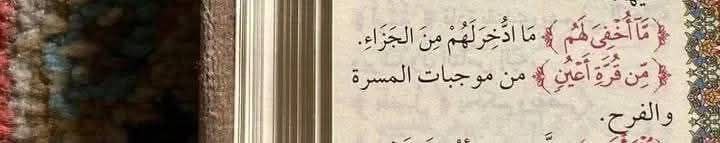 ﴿مَّآ أُخْفِىَ لَهُم﴾ مَا ادُّخِرَ لَهُمْ مِنَ الجَزَاءِ.
﴿مِّن قُرَّةِ أَعْيُنٍ﴾ من موجبات المسرة
والفرح.